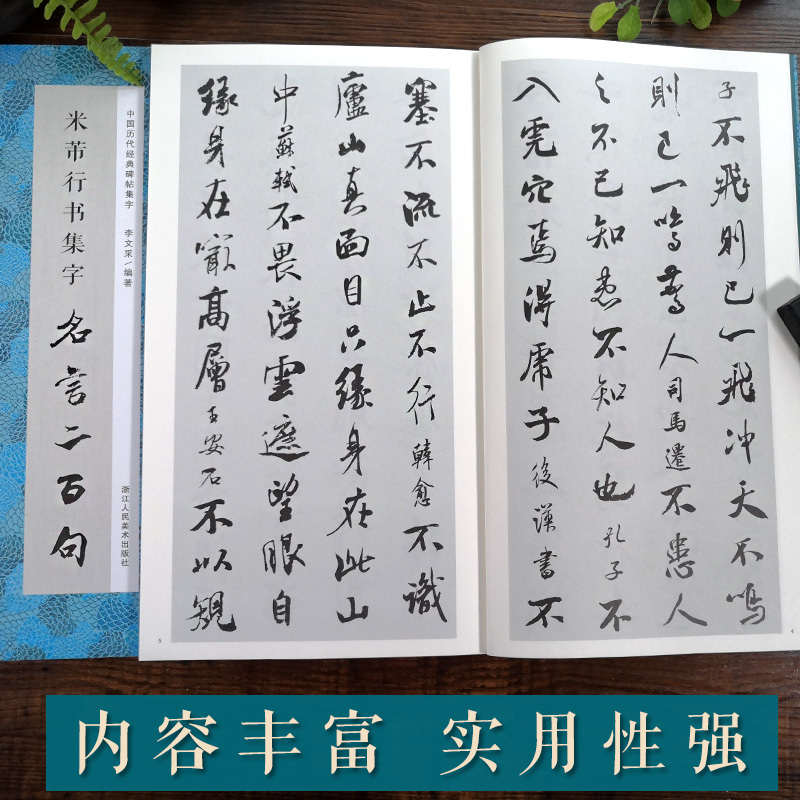 子不飛則已一飛冲天不鳴
則已一鳴驚人司馬遷不患人
之不已知患不知人也孔子不
入虎穴焉得虎子後漢書不
4
塞不流不止不行韓愈不識
廬山真面目只緣身在此山
中蘇軾不畏浮雲遮望眼自
緣身在最高層王安石不以規
5
中国历代经典碑帖集字 李文采/编著 浙江人民美术出版社
米芾行书集字 名言二百句
内容丰富 实用性强